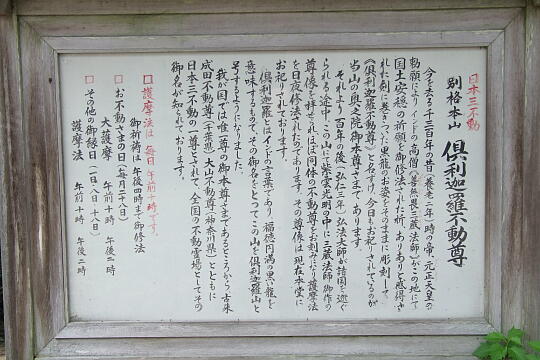 日本三不動
別格本山 倶利迦羅不動尊
今を去る千三百年の昔(養老二年)時の帝、元正天皇の
勅願によりインドの高僧(善無畏三蔵法師)がこの地にて
国土安穏の祈願を御修法された折、ありありと感得さ
れた剣に巻きついた黒龍のお姿をそのままに彫刻して
《倶利迦羅不動尊》と名すけ、今日もお祀りされているのが
当山の奥之院御本尊さまであります。
それより百年の後(弘仁三年)弘法大師が諸国を巡ぐ
られる途中、この山にて紫雲光明の中に三蔵法師御作の
尊像を拝せられほぼ同体の不動尊をお刻みになり護摩法
を日夜修法されたのであります。その尊像は現在本堂に
お祀りされております。
倶利迦羅とはインドの言葉であり、福徳円満の黒い龍を
意味するもので、その御名をとってこの山を倶利迦羅山と
号するようになりました。
我が国では唯一尊の御本尊さまであるところから古来
成田不動尊(千葉県)大山不動尊(神奈川県)とともに
日本三不動の一尊とされて、全国の不動霊場としてその
御名が知られております。
護摩法は毎日午前十時です。
御祈祷は午後四時まで御修法
お不動さまの日(毎月二十八日)
大護摩 午前十時 午後二時
その他の御縁日(一日、八日、十八日)
護摩法 午前十時 午後二時